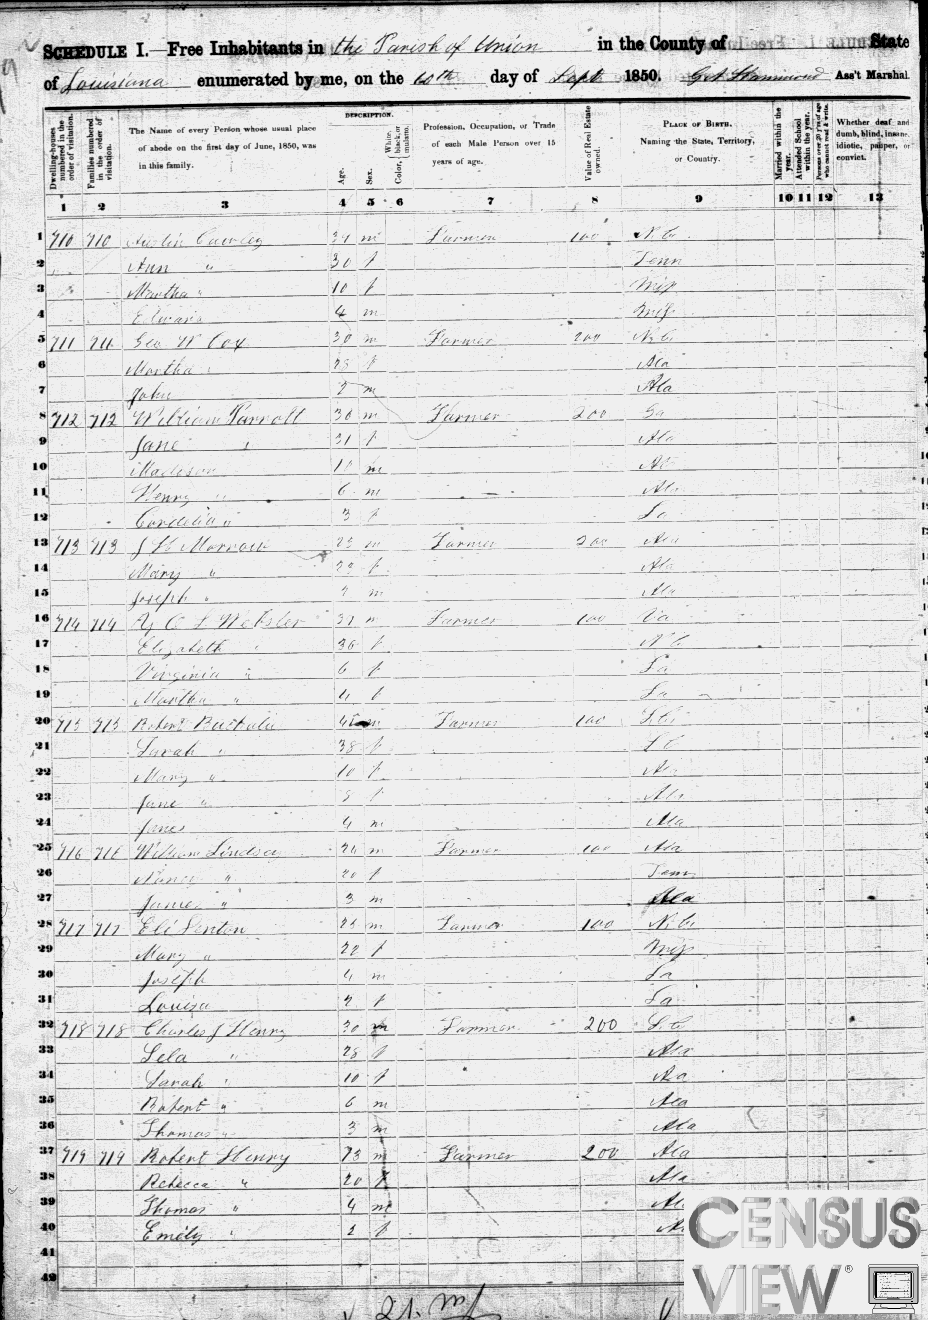 SCHEDULE I.—Free Inhabitants in the Parish of Union in the County of State
of Louisiana enumerated by me, on the 10th day of Sept 1850. Ass't Marshal.
Dwelling-houses numbered in the order of visitation.
Families numbered in the order of visitation.
The Name of every Person whose usual place of abode on the first day of June, 1850, was in this family.
DESCRIPTION.
Age.
Sex.
Color, White, black, or mulatto.
Profession, Occupation, or Trade of each Male Person over 15 years of age.
Value of Real Estate owned.
PLACE OF BIRTH.
Naming the State, Territory, or Country.
Married within the year.
Attended School within the year.
Persons over 20 y'rs of age who cannot read & write.
Whether deaf and dumb, blind, insane, idiotic, pauper, or convict.
1 2 3 4 5 6 7 8 9 10 11 12 13
1 710 710 Austin m Farmer 100 N.C.
2 Ann " 30 f Tenn
3 Martha " 10 f Mip
4 4 m Mip
5 711 711 Geo W Cox 30 m Farmer 200 N.C.
6 Martha " f Ala
7 John m Ala
8 712 712 William Parrott 30 m Farmer 200 Ga
9 Jane " 31 f Ala
10 Madison 10 m Al
11 Henry " 6 m Ala
12 Cordelia " 3 f La
13 713 713 Morrow m Farmer 200 Ala
14 Mary " f Ala
15 Joseph " m Ala
16 714 714 Webster Farmer 100 Va
17 Elizabeth " 36 f N C
18 Virginia " 6 f La
19 Martha " 4 f La
20 715 715 Robert m Farmer 100 S.C.
21 Sarah " 38 f S C
22 Mary " 10 f Ala
23 Jane " 8 f Ala
24 James 4 m Ala
25 716 716 William Lindsey m Farmer 100 Ala
26 Nancy " 20 f Tenn
27 James " 3 m Ala
28 717 717 Eli m Farmer 100 N.C.
29 Mary " 22 f Mip
30 Joseph 4 m La
31 Louiza 2 f La
32 718 718 Charles J Henry 30 m Farmer 200 S.C.
33 Lela " 28 f Ala
34 Sarah " 10 f Ala
35 Robert " 6 m Ala
36 Thomas " 3 m Ala
37 719 719 Robert Henry 23 m Farmer 200 Ala
38 Rebecca " 20 f Ala
39 Thomas " 4 m Al
40 Emily " 2 f A
41
42
21. m
CENSUS
VIEW®